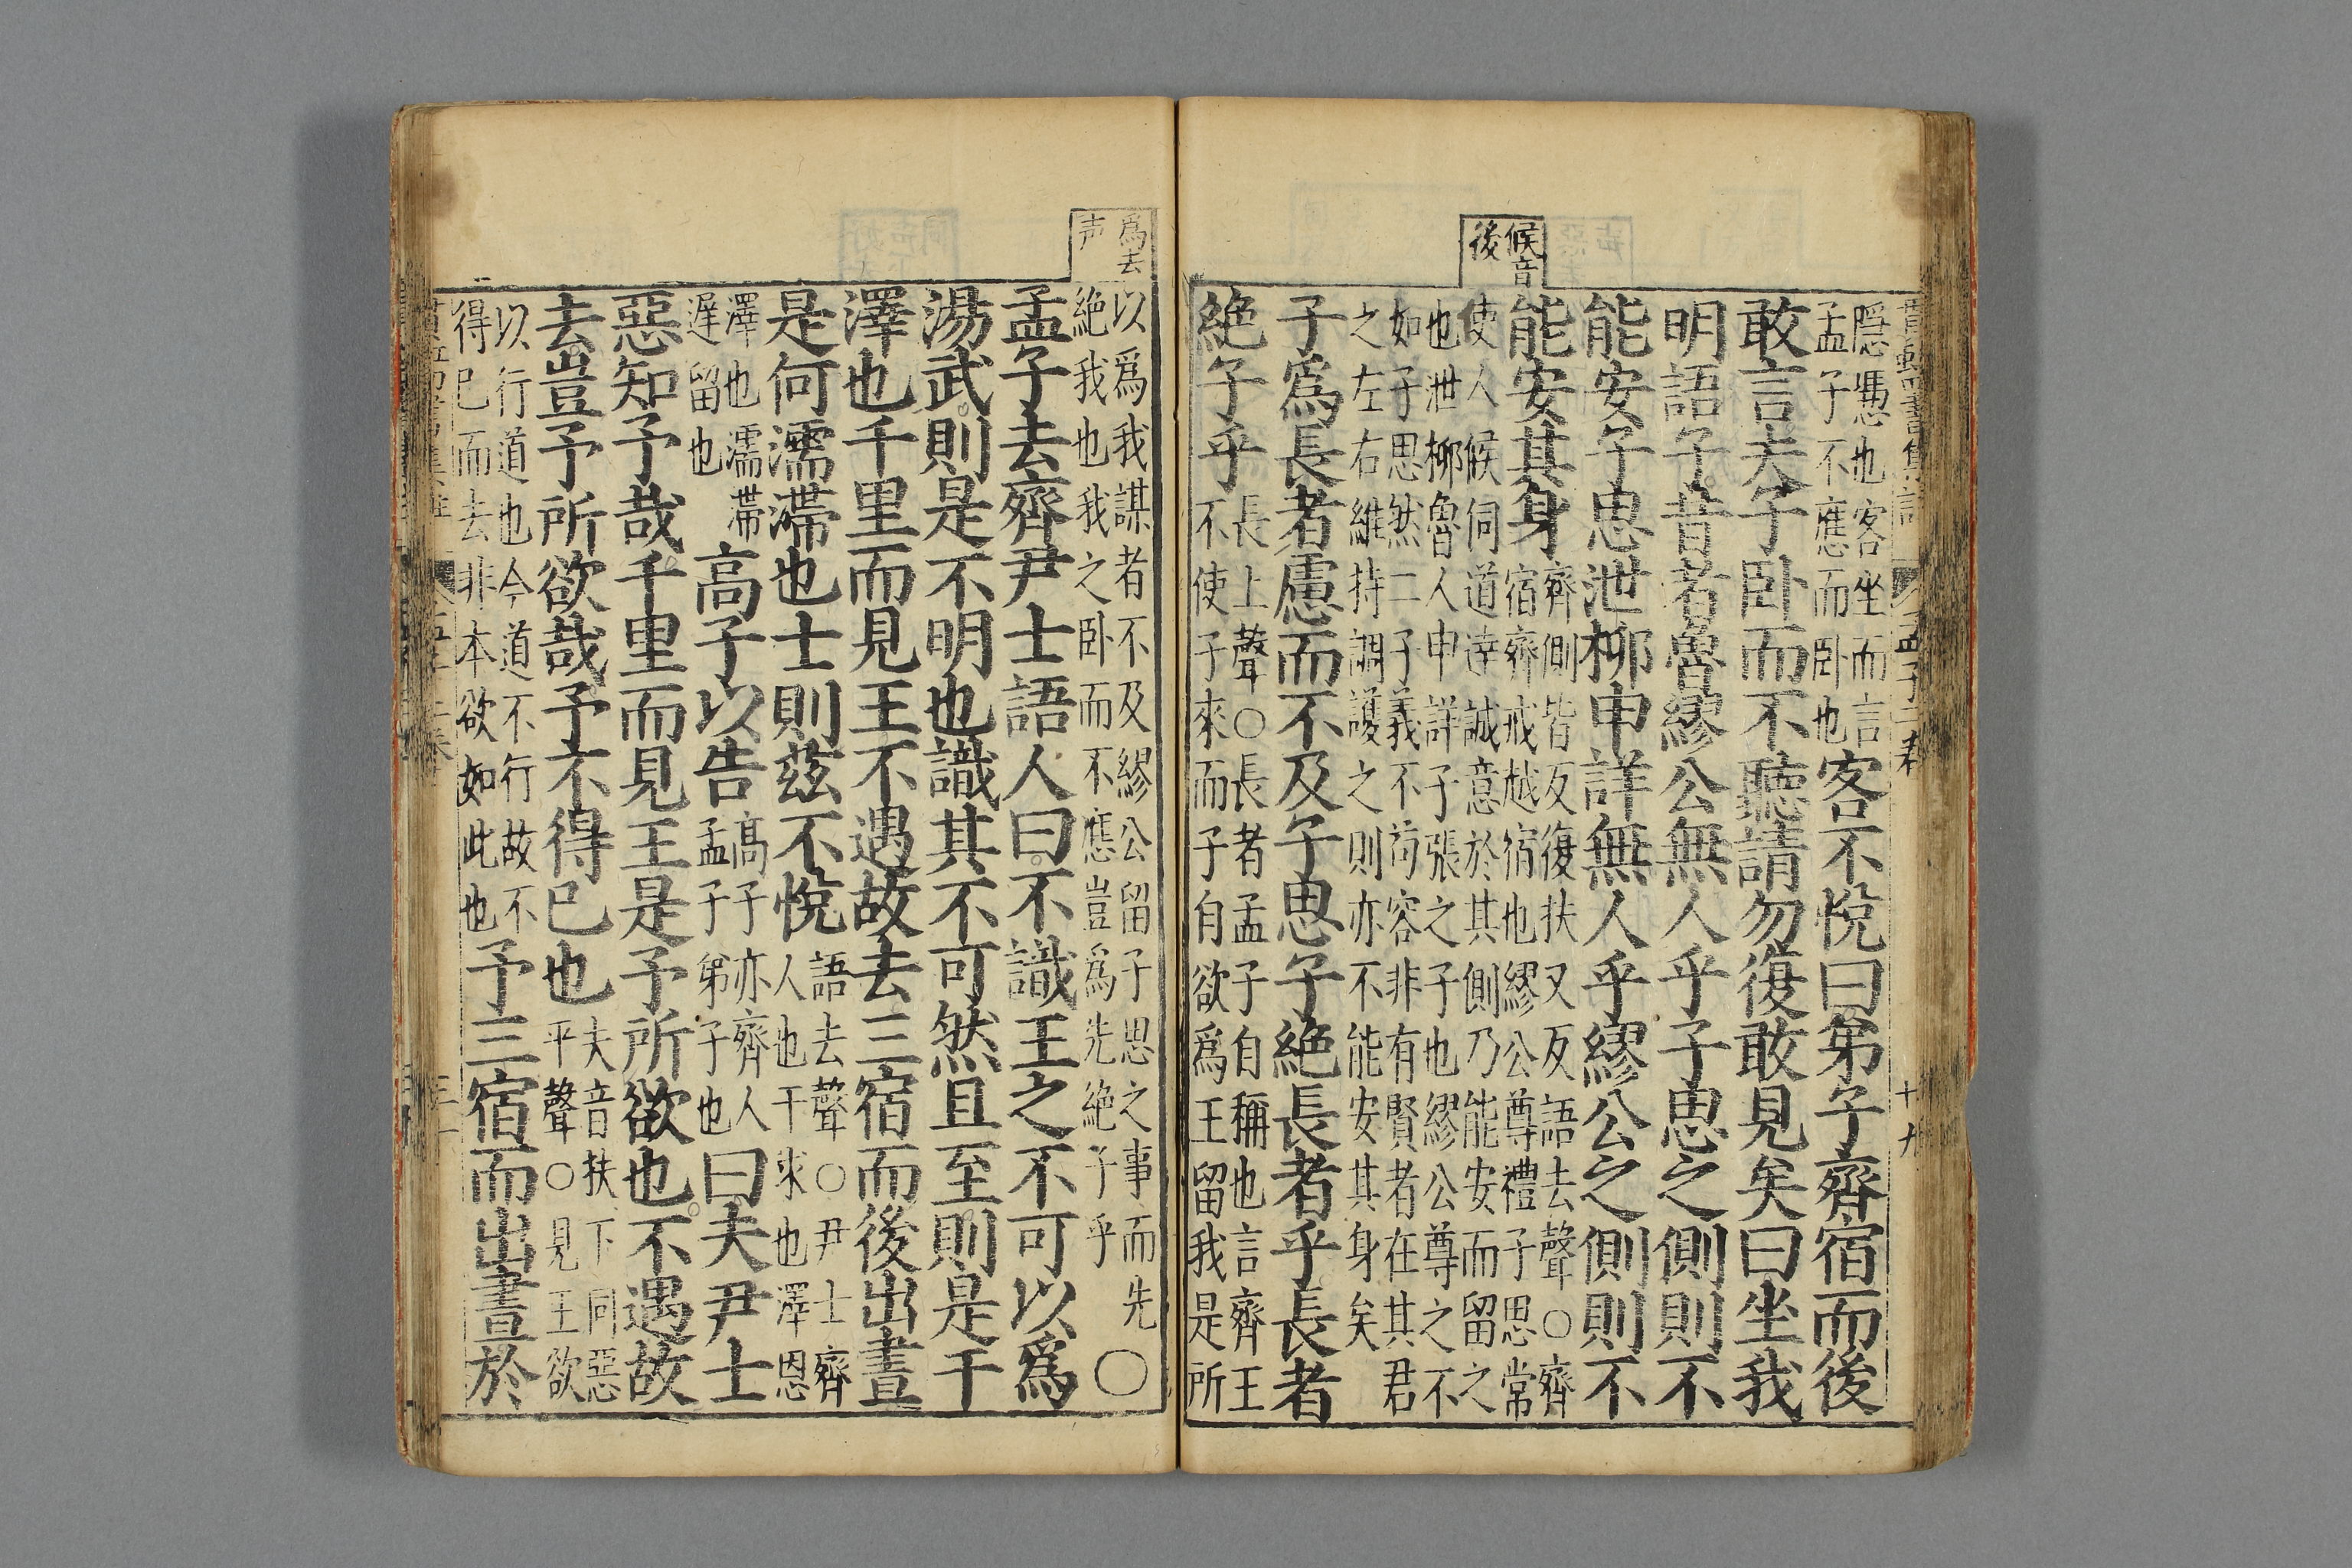 候音
後
隱憑也客坐而言
孟子不應而卧也
客不悅曰弟子齊宿而後
敢言夫子卧而不聽請勿復敢見矣曰坐我
明語子昔者魯繆公無人乎子思之側則不
能安子思泄柳申詳無人乎繆公之側則不
能安其身
齊側皆反復扶又反語去聲○齊
宿齊戒越宿也繆公尊禮子思常
使人候伺道達誠意於其側乃能安而留之
也泄柳魯人申詳子張之子也繆公尊之不
如子思然二子義不苟容非有賢者在其君
之左右維持調護之則亦不能安其身矣
子爲長者慮而不及子思子絶長者乎長者
絶子乎
長上聲○長者孟子自稱也言齊王
不使子來而子自欲爲王留我是所
爲去
声
以爲我謀者不及繆公留子思之事而先
絶我也我之卧而不應豈爲先絶子乎
○
孟子去齊尹士語人曰不識王之不可以爲
湯武則是不明也識其不可然且至則是干
澤也千里而見王不遇故去三宿而後出晝
是何濡滯也士則茲不悅
語去聲○尹士齊
人也干求也澤恩
澤也濡滯
遅留也
高子以告
高子亦齊人
孟子弟子也
曰夫尹士
惡知予哉千里而見王是予所欲也不遇故
去豈予所欲哉予不得已也
夫音扶下同惡
平聲○見王欲
以行道也今道不行故不
得已而去非本欲如此也
予三宿而出晝於